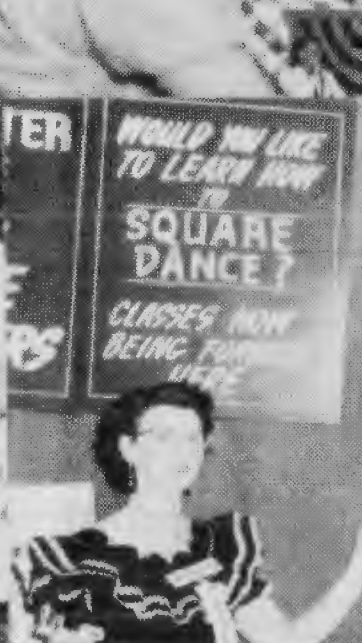 TER
E
RS
WOULD YOU LIKE
TO LEARN HOW
TO
SQUARE
DANCE?
CLASSES NOW
BEING FORMED
HERE